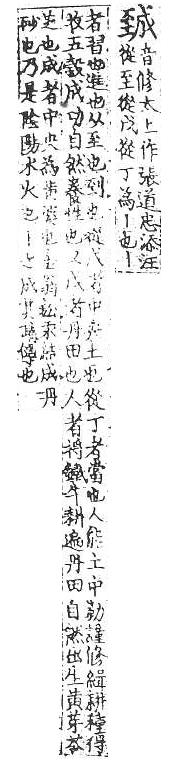 音修太上作張道忠添注
從至從戊從丁為丨也丨
者習也進也从至也到也從戊者中央土也從丁者當也人能土中勤謹修緝耕種得
牧五穀成功自然養性也又戊者丹田也人者將鐵牛耕遍丹田自然也生黃芽苓
也成者中央為黃 結成丹
砂也乃是陰陽水火也丨也成其 也